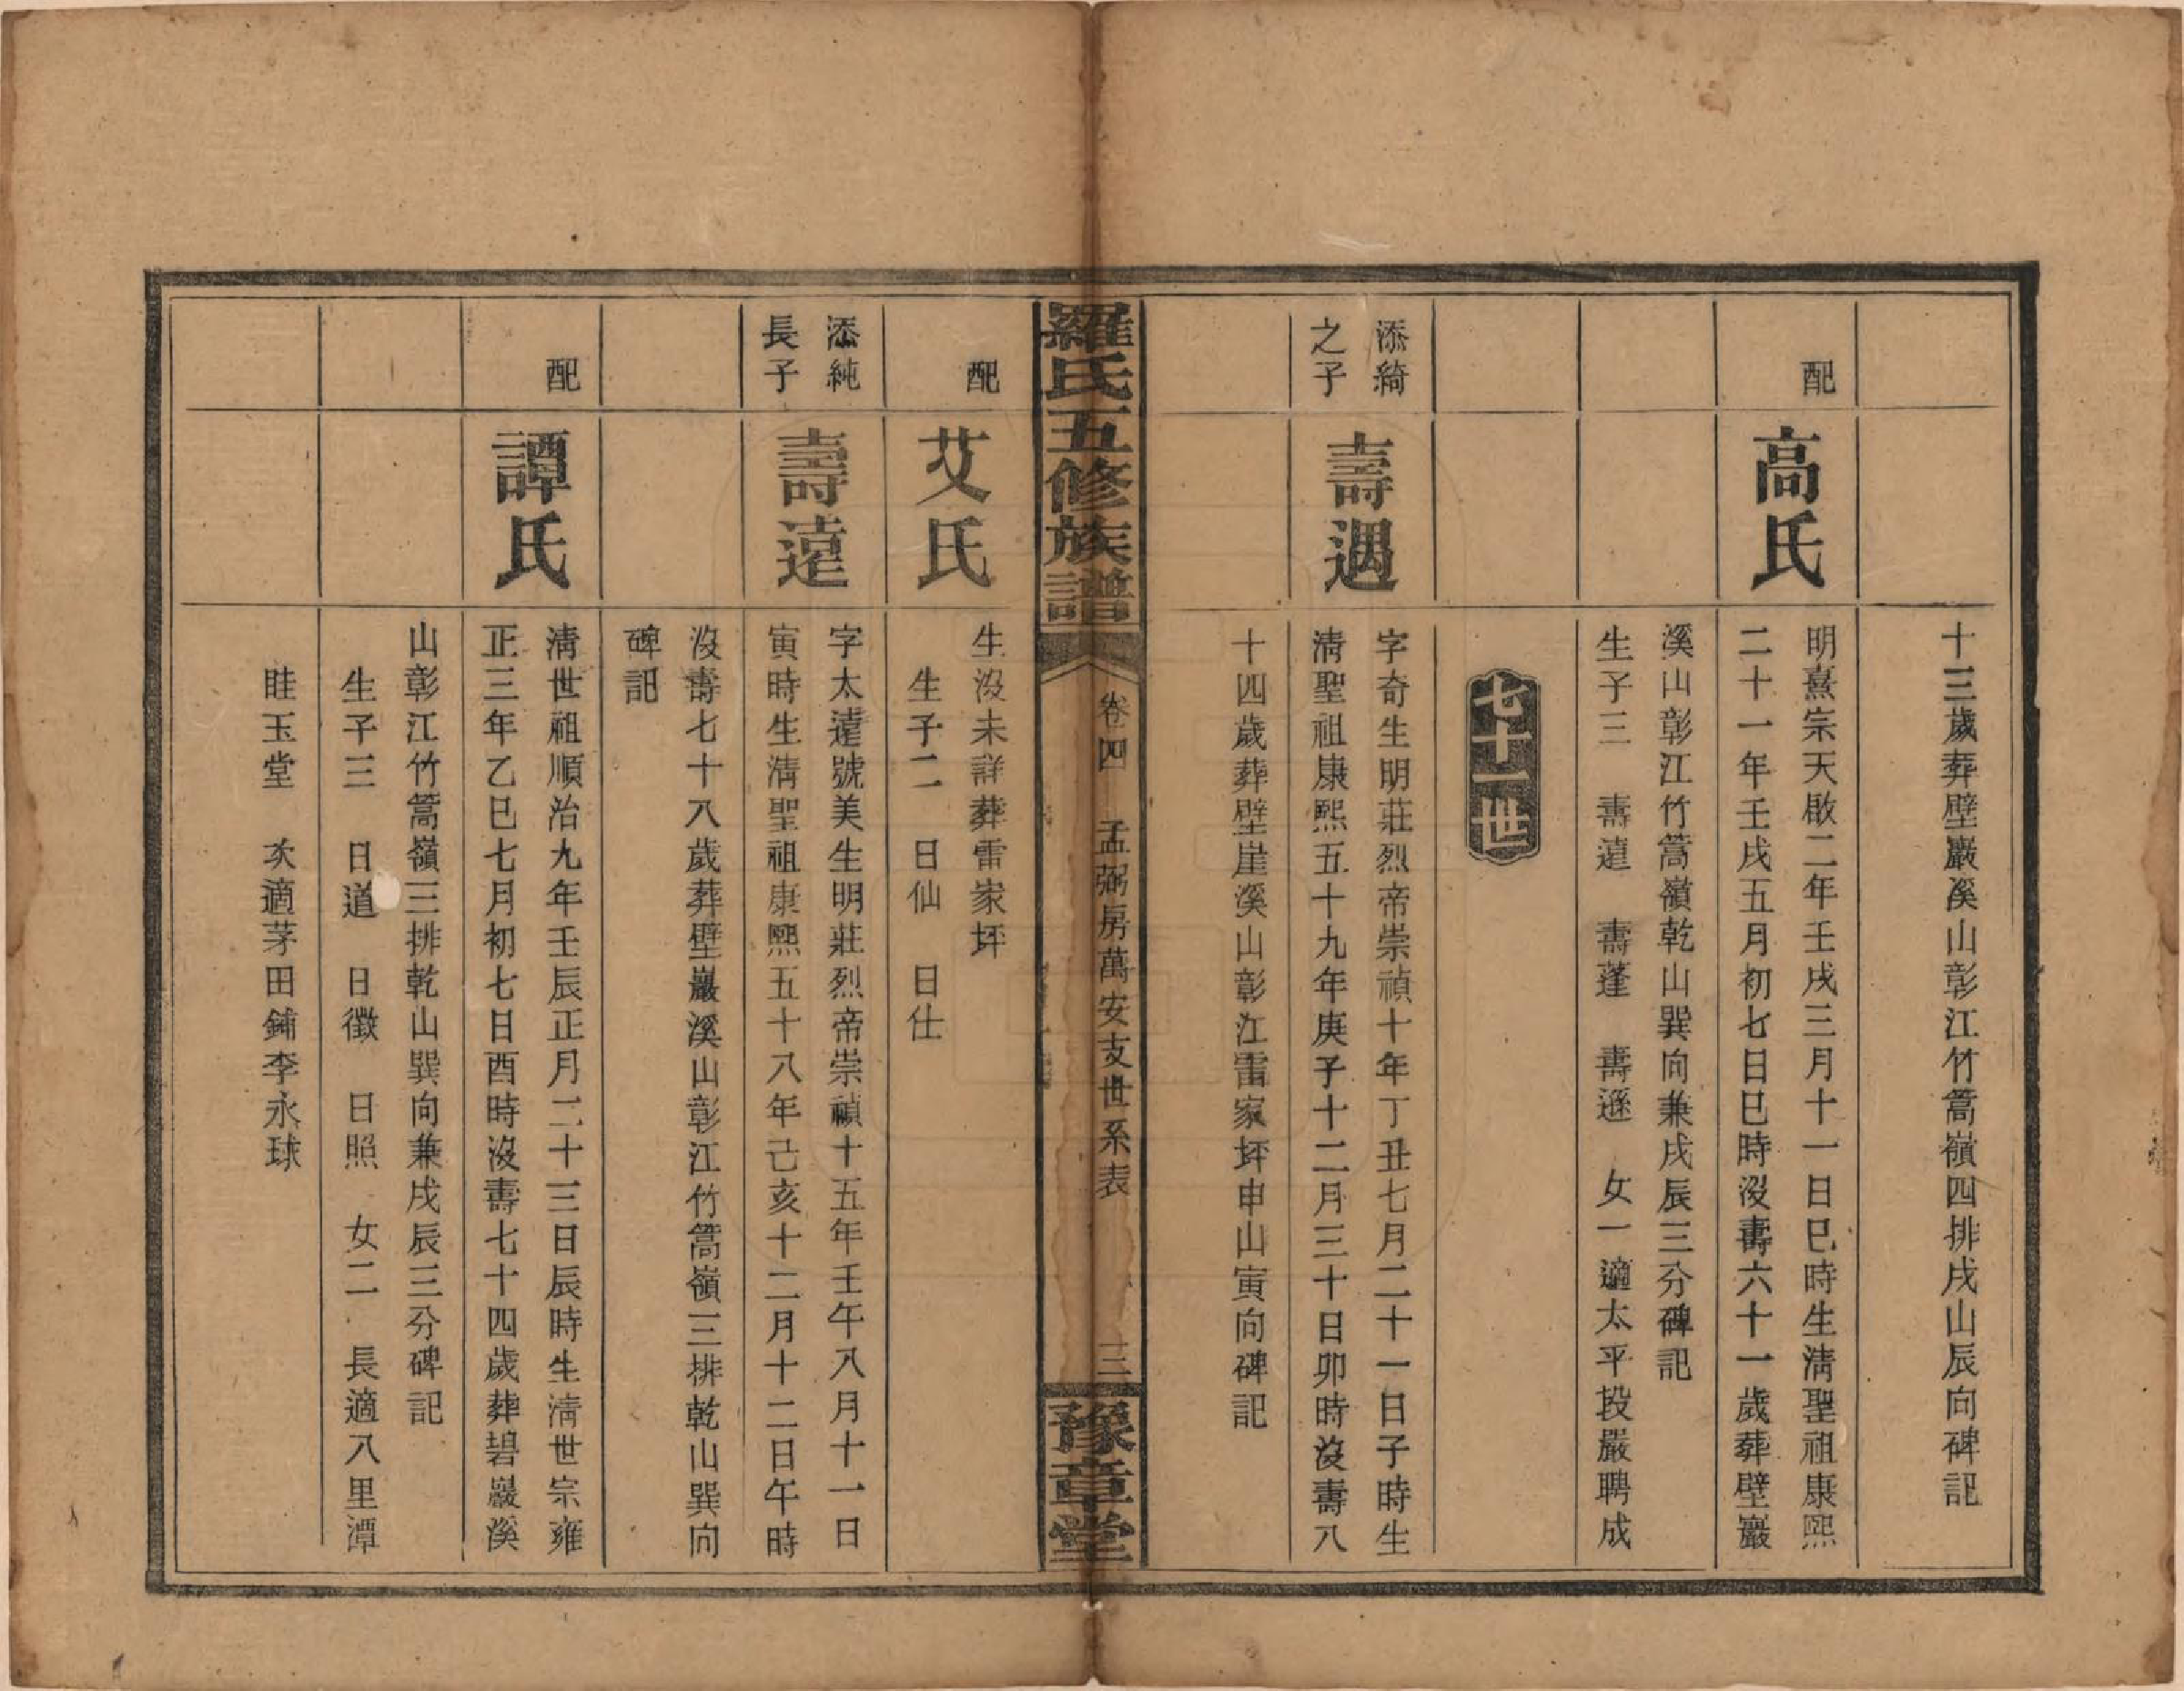 十三歲葬壁巖溪山彰江竹篙嶺四排戌山辰向碑記
配
高氏
明熹宗天啟二年壬戌三月十一日巳時生淸聖祖康熙
二十一年壬戌五月初七日巳時沒壽六十一歲葬壁巖
溪山彰江竹篙嶺乾山巽向兼戌辰三分碑記
生子三 壽遠 壽蓬 壽遜 女一適太平段嚴聘成
七十一世
添綺
之子
壽遇
字奇生明莊烈帝崇禎十年丁丑七月二十一日子時生
淸聖祖康熙五十九年庚子十二月三十日卯時沒壽八
十四歲葬壁崖溪山彰江雷家坪申山寅向碑記
羅氏五修族譜
卷四 孟弼房萬安支世系表 三
豫章堂
配
艾氏
生沒未詳葬雷家坪
生子二 日仙 日仕
添純
長子
壽遠
字太遠號美生明莊烈帝崇禎十五年壬午八月十一日
寅時生淸聖祖康熙五十八年己亥十二月十二日午時
沒壽七十八歲葬壁巖溪山彰江竹篙嶺三排乾山巽向
碑記
配
譚氏
淸世祖順治九年壬辰正月二十三日辰時生淸世宗雍
正三年乙巳七月初七日酉時沒壽七十四歲葬碧巖溪
山彰江竹篙嶺三排乾山巽向兼戌辰三分碑記
生子三 日道 日徵 日照 女二 長適八里潭
眭玉堂 次適茅田鋪李永球